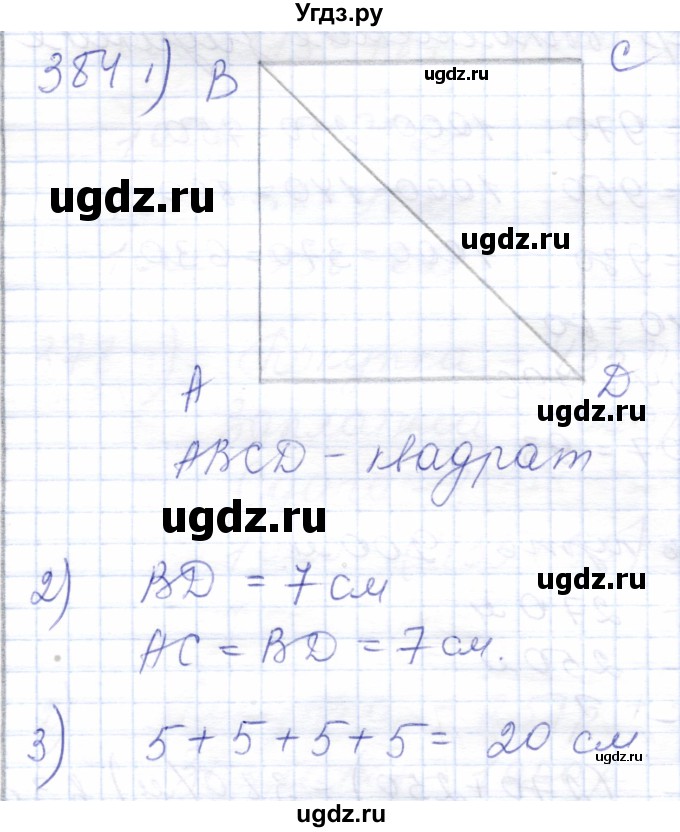 Угдз.ру
384 1) B C
ugdz.ru
ugdz.ru
ugdz.ru
A D
ugdz.ru
ABCD - квадрат
ugdz.ru
2) BD = 7 см
ugdz.ru
AC = BD = 7 см.
3) 5 + 5 + 5 + 5 = 20 см
ugdz.ru